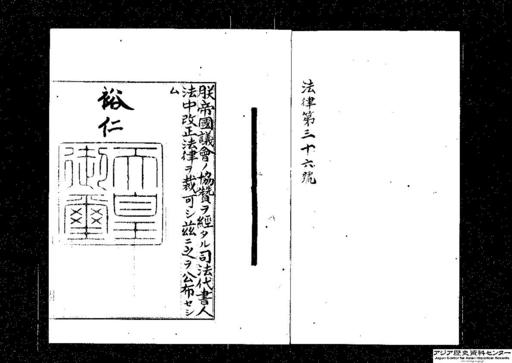 法律第三十六號
朕帝國議會ノ協贊ヲ經タル司法代書人
法中改正法律ヲ裁可シ茲ニ之ヲ公布セシ
ム
裕仁
天皇
御璽
アジア歴史資料センター
Japan Center for Asian Historical Records